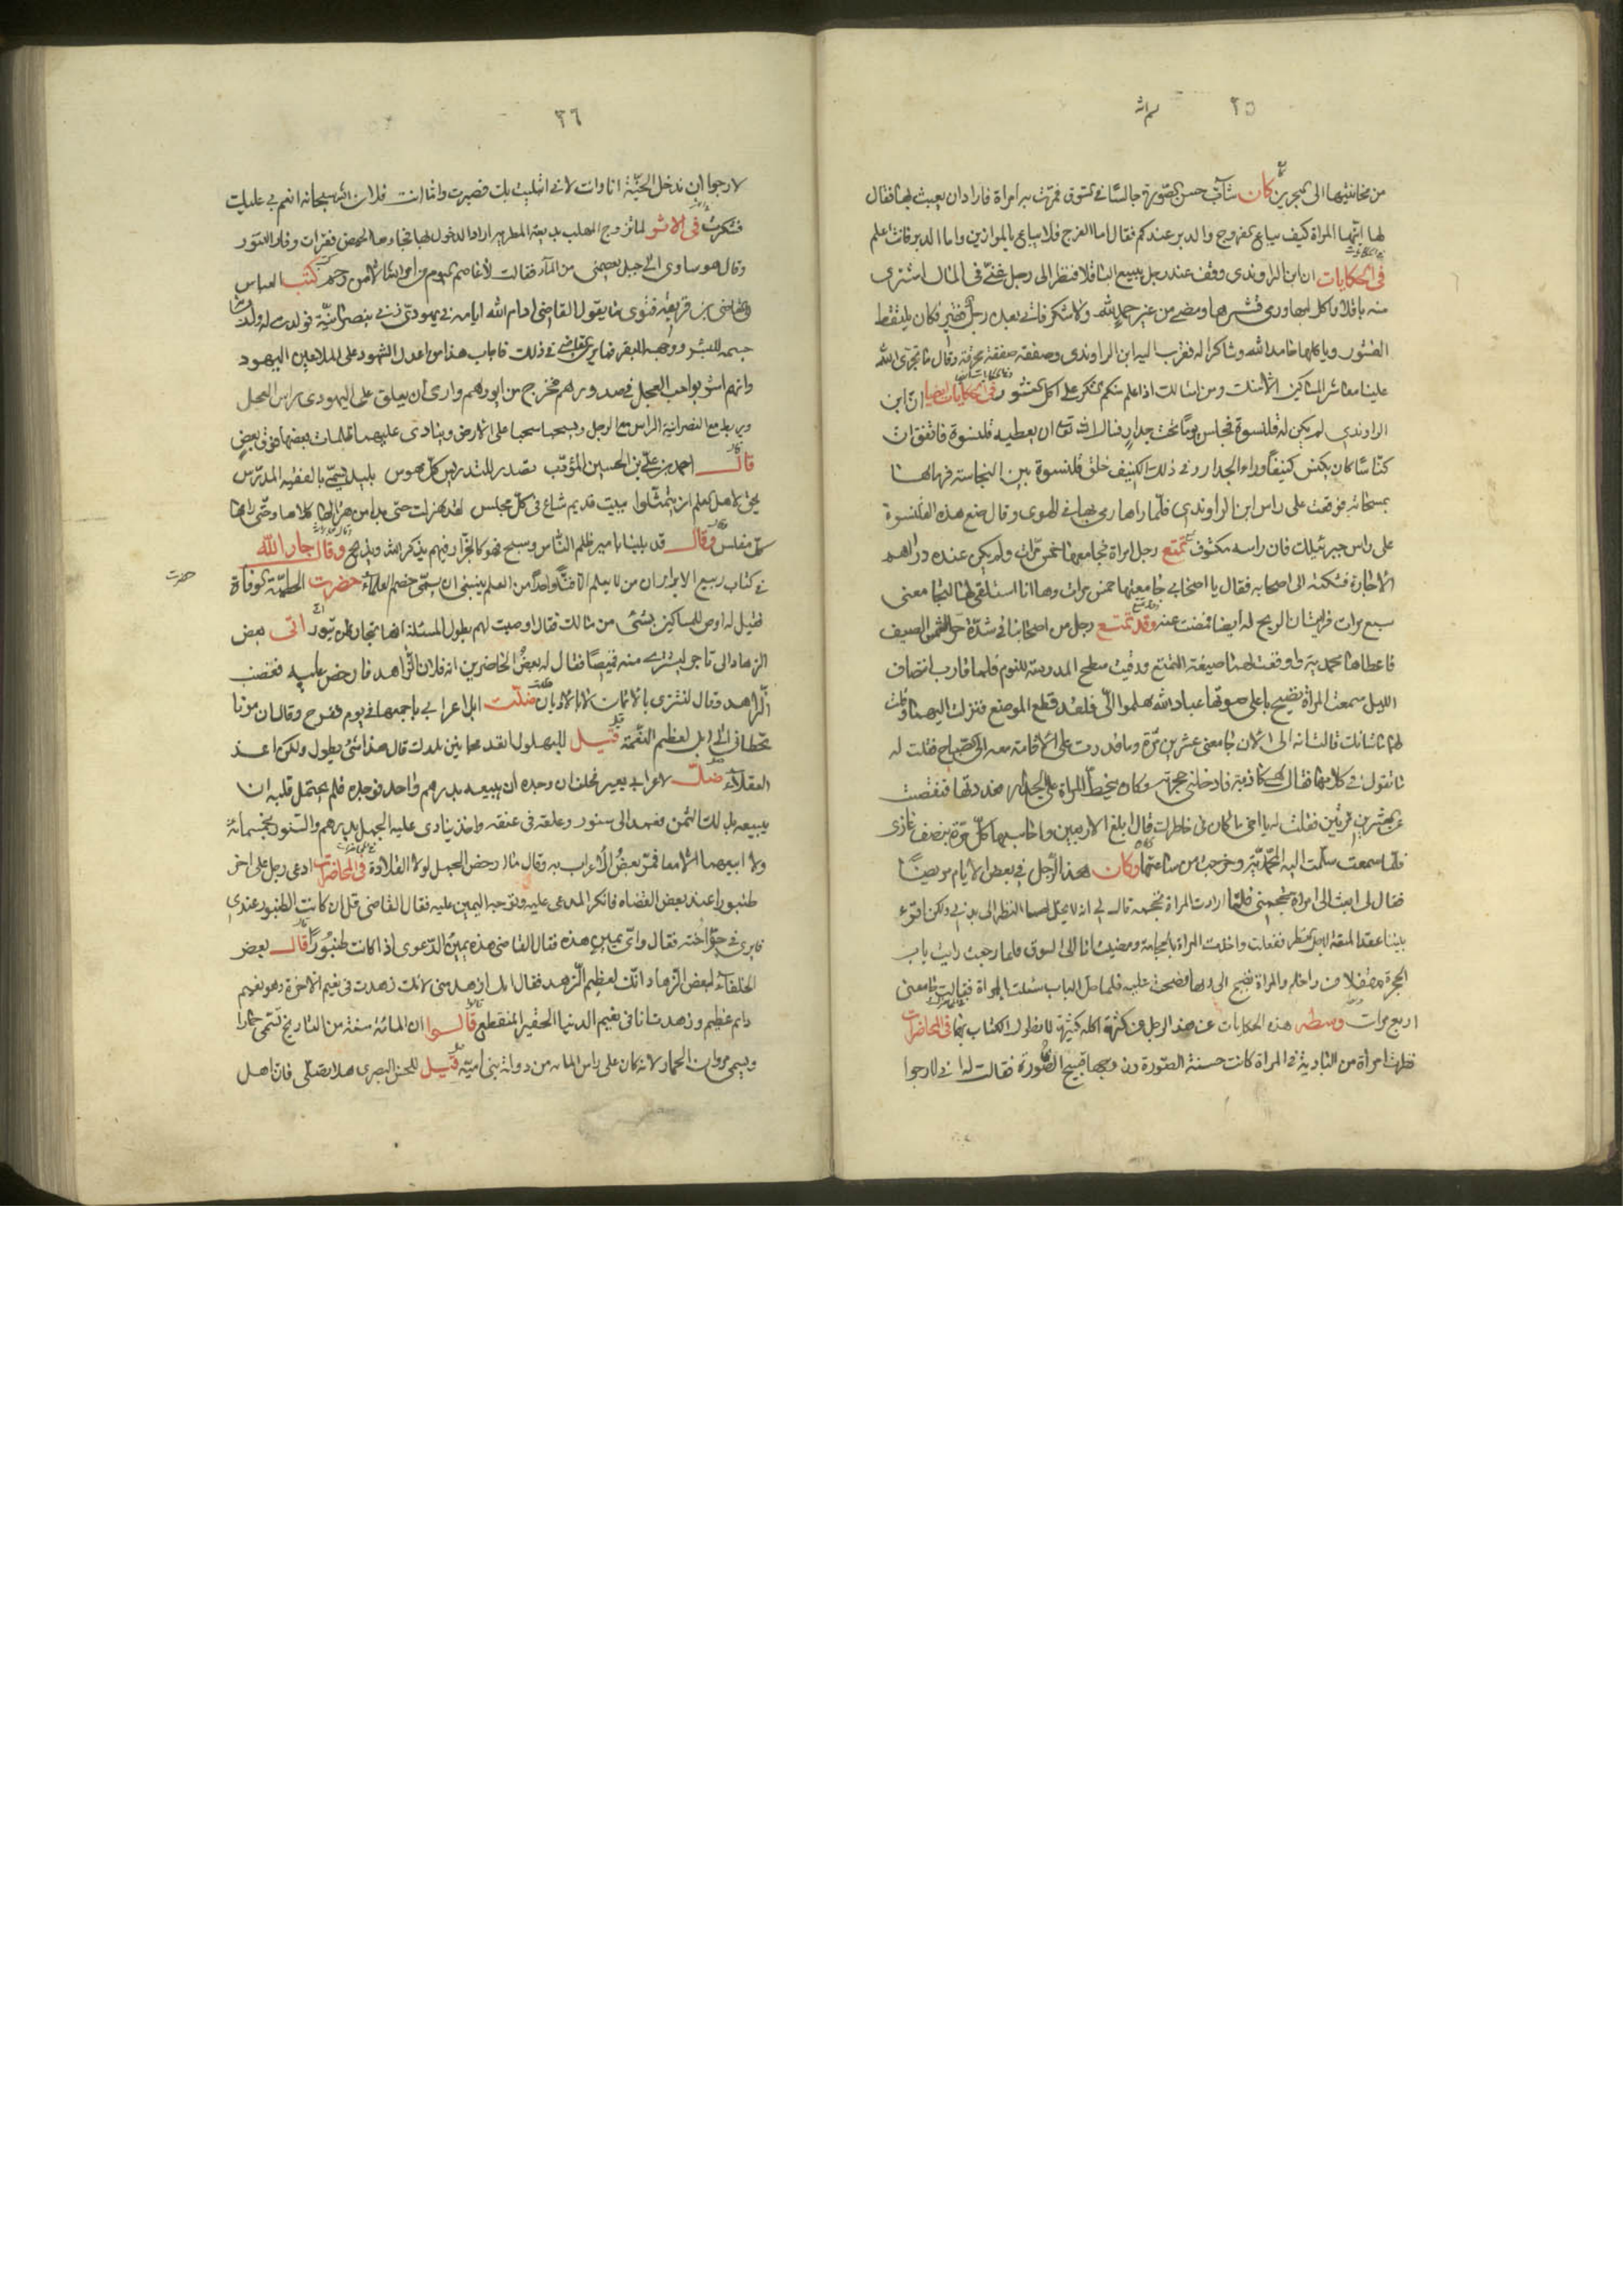 ٢٥
من مخانثيها الى المجربين كان شاب حسن الصورة جالسا في السوق فمرت به امراة فاراد ان يعبث بها فقال
لها ايتها المراة كيف يباع الفروج والدبر عندكم فقال اما الفرج فلا يباع بالموازين واما الدبر فانت اعلم
في الحكايات ان ابن الراوندي وقف عند رجل يبيع الباقلا فنظر الى رجل غني في المال اشترى
منه باقلا واكل لبها ورمى قشرها ومضى من غير حمد الله ولا شكر فاتى بعده رجل فقير فكان يلتقط
القشور وياكلها حامدا لله وشاكرا له فقرب اليه ابن الراوندي وصفقه صفقة وقال ما تجرى الله
علينا معاشر المساكين الا منك ومن امثالك اذا علم منكم الشكر على اكل القشور في الحكايات ايضا ان ابن
الراوندي لم يكن له قلنسوة فجلس يوما تحت جدار فسال الله تعالى ان يعطيه قلنسوة فاتفق ان
كناسا كان يكنس كنيفا وراء الجدار وفي ذلك الكنيف خلق قلنسوة بين النجاسة فرماها
بمسحاته فوقعت على راس ابن الراوندي فلما راها رمى بها في الهوى وقال ضع هذه القلنسوة
على راس جبرئيلك فان راسه مكشوف تمتع رجل امراة فجامعها خمس مرات ولم يكن عنده دراهم
الاجارة فشكته الى اصحابه فقال يا اصحابي جامعتها خمس مرات وها انا استلقي لها لتجامعني
سبع مرات ايضا فمضت عنه وقد تمتع رجل من اصحابنا في شدة حر الصيف
فاعطاها محمدية واوقعت لهما صيغة التمتع ورقيت سطح المدرسة للنوم فلما قارب انتصاف
الليل سمعت المراة تصيح باعلى صوتها عباد الله هلموا الي فلقد قطع الموضع فنزلت اليهما وقلت
لها ما شانك قالت انه الى الان جامعني عشرين مرة وما قدرت على الاقامة معه الى الصباح فقلت له
ما تقول في كلامها فقال كاذبة فادخلني حجرته وكان يخط للمراة على الجدار فعددتها فنقصت
عن العشرين مرتين فقلت له يا اخي ما كان في خاطرك قال ابلغ الاربعين واحاسبها كل مرة بنصف غازي
فلما سمعت سلمت اليه المحمدية وخرجت من ساعتها وكان هذا الرجل في بعض الايام مريضا
فقال لي ابعث الى امراة تحجمني فلما ارادت المراة تحجمه قال لي انه لا يحل لها النظر الى بدني ولكن اقرء
بيننا عقد المتعة لاجل النظر ففعلت واخذت المراة بالحجامة ومضيت انا الى السوق فلما رجعت رايت باب
الحجرة مقفلا من داخل والمراة تصيح الى ربها فصحت عليه فلما حل الباب سئلت المراة فقالت جامعني
اربع مرات وسطر هذه الحكايات عن هذا الرجل في كثرة اكله كثيرة لا نطول الكتاب بها في المحاضرات
نظرت امراة من البادية في المراة كانت حسنة الصورة وزوجها قبيح الصورة فقالت له اني لارجوا
٢٦
لارجوا ان ندخل الجنة انا وانت لاني ابتليت بك فصبرت واما انت فلان الله سبحانه انعم بي عليك
فشكرت في الاثر لما تزوج المهلب بديعة المطربة اراد الدخول بها فجاءها الحيض فقرات وفار التنور
وقال هو ساوي الى جبل يعصمني من الماء فقالت لا عاصم اليوم من امر الله الا من رحم كتب العباس
للقاضي بن قريعة فتوى ما يقول القاضي ادام الله ايامه في يهودي زنى بنصرانية فولدت له ولدا
جسمه للبشر ووجهه للبقر فما يرى القاضي في ذلك فاجاب هذا من اعدل الشهود على الملاعين اليهود
وانهم اشربوا حب العجل في صدورهم فخرج من ايورهم وارى ان يعلق على اليهودي راس العجل
ويربط مع النصرانية الراس مع الرجل ويسحبا سحبا على الارض وينادى عليهما ظلمات بعضها فوق بعض
قال احمد بن علي بن الحسين المؤدب تصدر للتدريس كل مهوس بليد يسمى بالفقيه المدرس
يحق لاهل العلم ان يتمثلوا ببيت قديم شاع في كل مجلس لقد هزلت حتى بدا من هزالها كلاها وحتى رامها
كل مفلس وقال قد بلينا بامير ظلم الناس وسبح فهو كالجزار فيهم يذكر الله ويذبح وقال جار الله
في كتاب ربيع الابرار ان من لا يعلم الا فنا واحدا من العلم ينبغي ان يسمى خصم العلماء حضرت الحطيئة الوفاة
فقيل له اوص للمساكين بشئ من مالك فقال اوصيت لهم بطول المسئلة فانها تجارة لن تبور اتى بعض
الزهاد الى تاجر ليشتري منه قميصا فقال له بعض الحاضرين انه فلان الزاهد فارخص عليه فغضب
الزاهد وقال نشتري بالاثمان لا بالاديان ضلت ابل اعرابي باجمعها في يوم ففرح وقال ان موتا
تخطاني الى ابل لعظيم النعمة قيل للبهلول لتعد مجانين بلدك قال هذا شئ يطول ولكن اعد
العقلاء ضل لاعرابي بعير فحلف ان وجده ان يبيعه بدرهم واحد فوجده فلم يحتمل قلبه ان
يبيعه بذلك الثمن فعمد الى سنور وعلقه في عنقه واخذ ينادي عليه الجمل بدرهم والسنور بخمسمائة
ولا ابيعهما الا معا فمر بعض الاعراب به وقال ما ارخص الجمل لولا القلادة في المحاضرات ادعى رجل على اخر
طنبورا عند بعض القضاة فانكر المدعى عليه وتوجه اليمين عليه فقال القاضي قل ان كانت الطنبور عندي
فايري في حر اخته فقال واي يمين هذه فقال القاضي هذه يمين الدعوى اذا كانت طنبورا قال بعض
الخلفاء لبعض الزهاد انك لعظيم الزهد فقال انك ازهد مني لانك زهدت في نعيم الاخرة وهو نعيم
دائم عظيم وزهدت انا في نعيم الدنيا الحقير المنقطع قالوا ان المائة سنة من التاريخ تسمى حمارا
ويسمى مروان الحمار لانه كان على راس المائة من دولة بني امية قيل للحسن البصري هلا تصلي فان اهل
حضرت